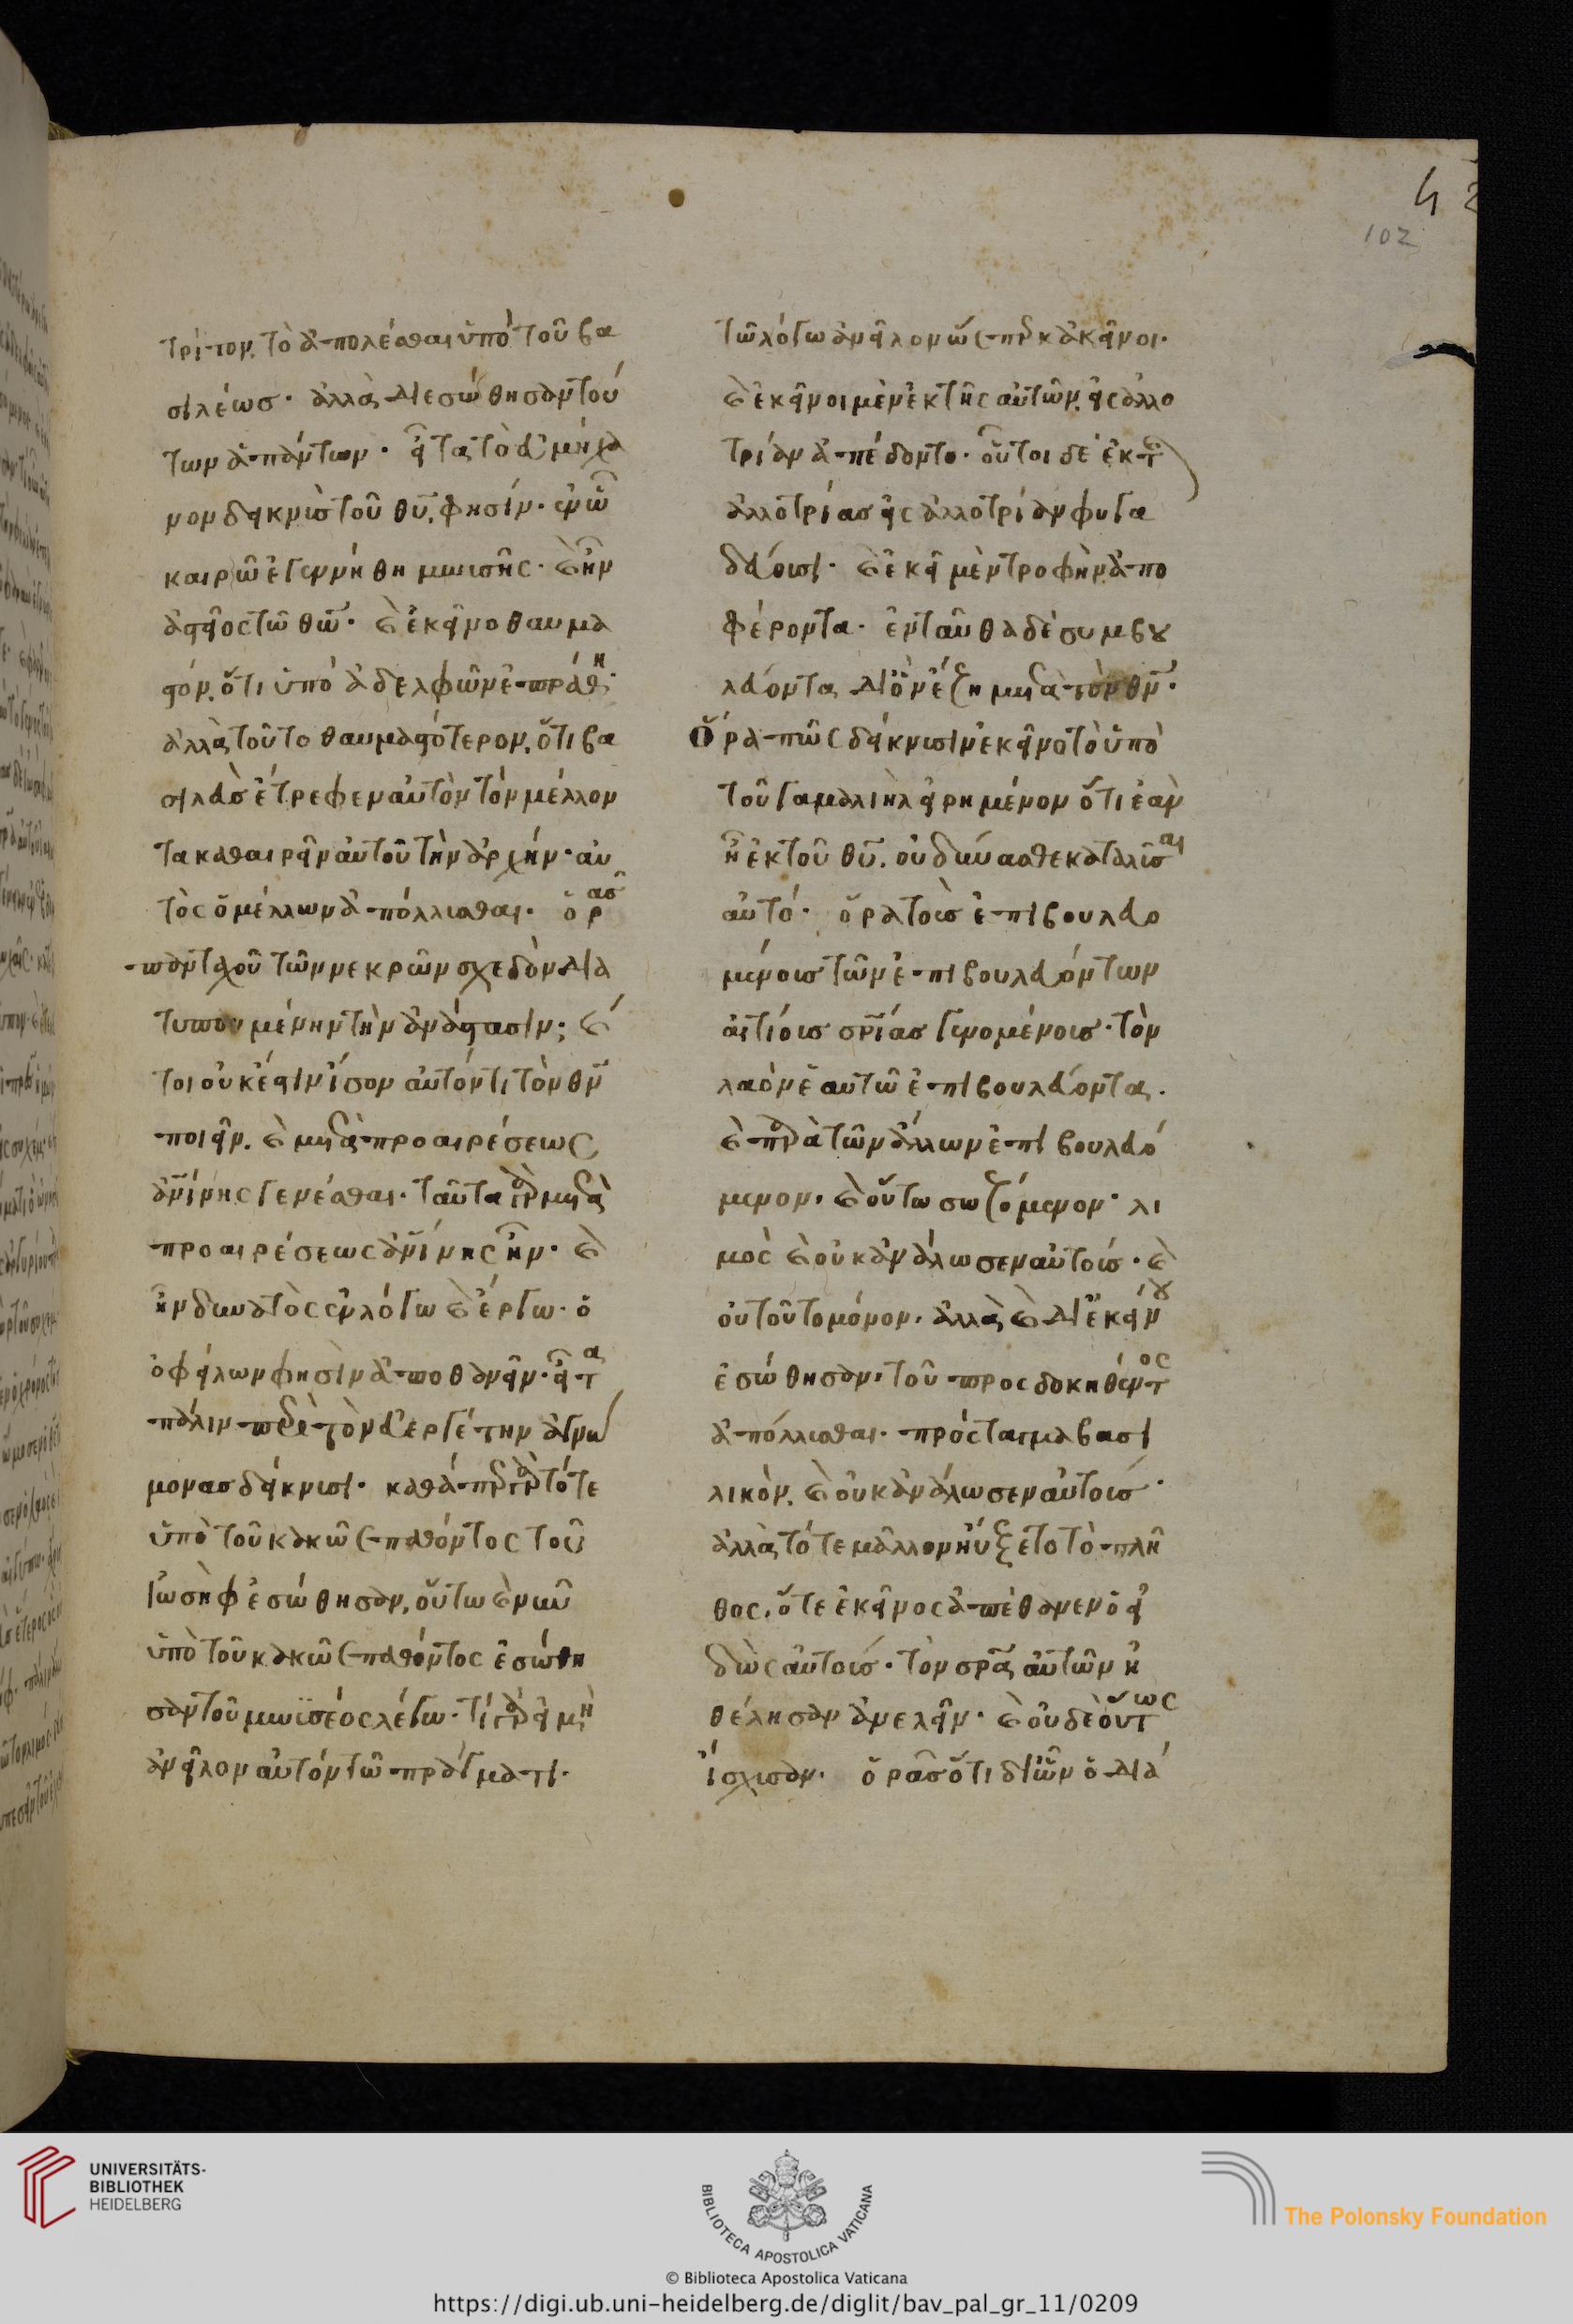 τρίτον, τὸ ἀπολέσθαι ὑπὸ τοῦ βα
σιλέωσ· ἀλλὰ διεσώθησαν τού
των ἁπάντων· εἶτα τὸ εὐμήχα
νον δεικνὺσ τοῦ θῡ, φησίν· ἐν ὧ
καιρῶ ἐγεννήθη μωυσῆς· καὶ ἦν
ἀστεῖος τῶ θῶ̄· καὶ ἐκεῖνο θαυμα
στόν, ὅτι ὑπὸ ἀδελφῶν ἐπράθη·
ἀλλὰ τοῦτο θαυμαστότερον, ὅτι βα
σιλεὺσ ἔτρεφεν αὐτὸν τὸν μέλλον
τα καθαιρεῖν αὐτοῦ τὴν ἀρχήν· αὐ
τὸς ὁ μέλλων ἀπόλλυσθαι. ὁρᾶσ
πανταχοῦ τῶν νεκρῶν σχεδὸν δια
τυπουμένην τὴν ἀνάστασιν; καί
τοι οὐκ ἔστιν ἴσον αὐτόν τι τὸν θν̄
ποιεῖν, καὶ μετὰ προαιρέσεως
ἀν̄ίνης γενέσθαι· ταῦτα γὰρ μετὰ
προαιρέσεως ἀν̄ίνης ἦν· καὶ
ἦν δυνατὸς ἐν λόγω καὶ ἔργω· ὁ
ὀφείλων φησὶν ἀποθανεῖν· εἶτα
πάλιν περὶ τὸν εὐεργέτην ἀγνώ
μονασ δείκνυσι· καθάπερ γὰρ τότε
ὑπὸ τοῦ κακῶς παθόντος τοῦ
ἰωσὴφ ἐσώθησαν, οὕτω καὶ νῦν
ὑπὸ τοῦ κακῶς παθόντος ἐσώθη
σαν τοῦ μωϋσέος λέγω· τί γὰρ εἰ μὴ
ἀνεῖλον αὐτὸν τῶ πράγματι·
τῶ λόγω ἀνεῖλον ὥσπερ κἀκεῖνοι·
καὶ ἐκεῖνοι μὲν ἐκ τῆς αὐτῶν, εἰς ἀλλο
τρίαν ἀπέδοντο· οὗτοι δὲ ἐκ τῆς
ἀλλοτρίασ εἰς ἀλλοτρίαν φυγα
δεύουσι· καὶ ἐκεῖ μὲν τροφὴν ἀπο
φέροντα· ἐνταῦθα δὲ συμβου
λεύοντα δι' ὃν ἔζη μετὰ τὸν θν̄·
Ὅρα πῶς δείκνυσιν ἐκεῖνο τὸ ὑπὸ
τοῦ γαμαλιὴλ εἰρημένον ὅτι ἐὰν
ἦ ἐκ τοῦ θῡ, οὐ δύνασθε καταλῦσαι
αὐτό· ὅρα τοὺσ ἐπιβουλευο
μένουσ τῶν ἐπιβουλευόντων
αἰτίουσ σρ̄ίασ γενομένουσ· τὸν
λαὸν ἑαυτῶ ἐπιβουλεύοντα.
καὶ παρὰ τῶν ἄλλων ἐπιβουλευό
μενον, καὶ οὕτω σωζόμενον· λι
μὸς καὶ οὐκ ἀνάλωσεν αὐτούσ· καὶ
οὐ τοῦτο μόνον, ἀλλὰ καὶ δι' ἐκείνου
ἐσώθησαν, τοῦ προσδοκηθέντος
ἀπόλλυσθαι· πρόσταγμα βασι
λικὸν, καὶ οὐκ ἀνάλωσεν αὐτούσ·
ἀλλὰ τότε μᾶλλον ηὔξετο τὸ πλῆ
θος, ὅτε ἐκεῖνος ἀπέθανεν ὁ εἰ
δὼς αὐτούσ· τὸν σρ̄α αὐτῶν ἠ
θέλησαν ἀνελεῖν· καὶ οὐδὲ οὕτως
ἴσχυσαν· ὁρᾶσ ὅτι δι' ὧν ὁ διά
42
102
UNIVERSITÄTS-
BIBLIOTHEK
HEIDELBERG
BIBLIOTECA APOSTOLICA VATICANA
The Polonsky Foundation
© Biblioteca Apostolica Vaticana
https://digi.ub.uni-heidelberg.de/diglit/bav_pal_gr_11/0209